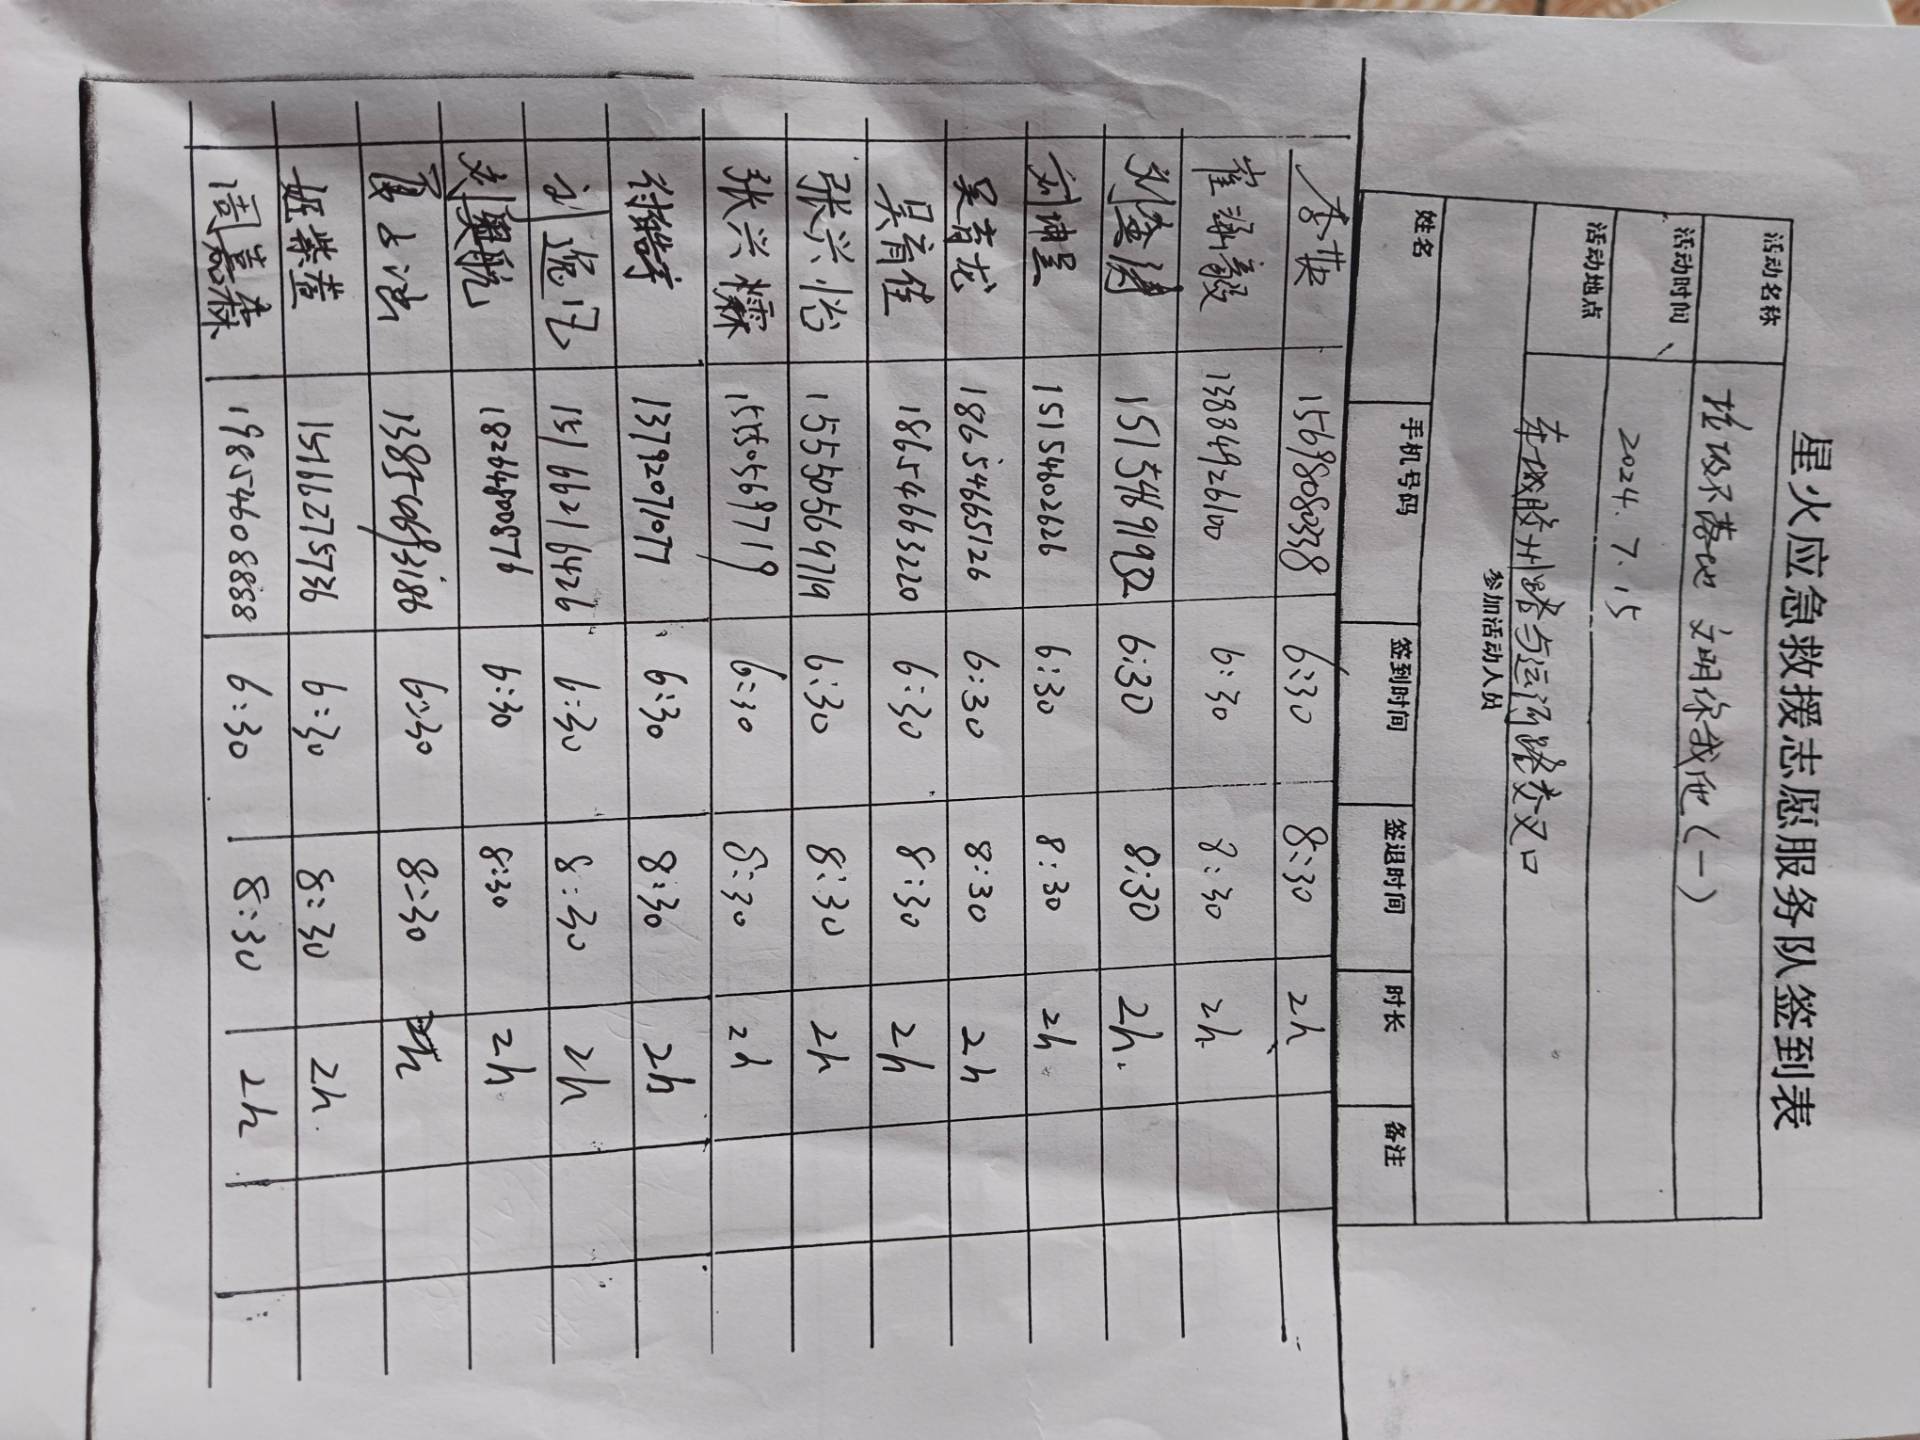 星火应急救援志愿服务队签到表
活动名称 垃圾不落地 文明你我他(一)
活动时间 2024.7.15
活动地点 车城胶州路与运河路交叉口
参加活动人员
姓名 手机号码 签到时间 签退时间 时长 备注
李 15698080338 6:30 8:30 2h
崔 毅 13884926100 6:30 8:30 2h
15154619192 6:30 8:30 2h.
刘坤昊 15154602626 6:30 8:30 2h
吴青龙 18654665126 6:30 8:30 2h
吴育佳 18654663220 6:30 8:30 2h
张兴怡 15550569719 6:30 8:30 2h
张兴霖 15505699719 6:30 8:30 2h
徐皓宇 13792071077 6:30 8:30 2h
刘 15166216426 6:30 8:30 2h
刘奥航 18264800876 6:30 8:30 2h.
6:30 8:30 2h
紫萱 15166275736 6:30 8:30 2h.
周嘉森 19854608888 6:30 8:30 2h